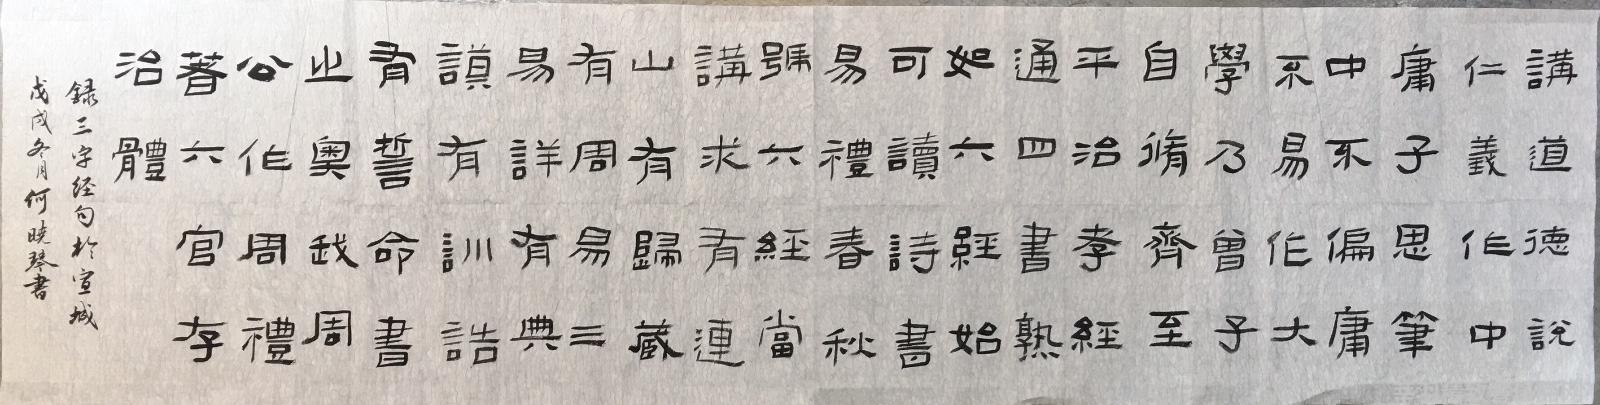 講道德說
仁義作中
庸子思筆
中不偏庸
不易作大
學乃曾子
自脩齊至
平治孝經
通四書熟
如六經始
可讀詩書
易禮春秋
號六經當
講求有連
山有歸藏
有周易三
易詳有典
謨有訓誥
有誓命書
之奥我周
公作周禮
著六官存
治體
録三字经句於宣城
戊戌冬月何晓琴書